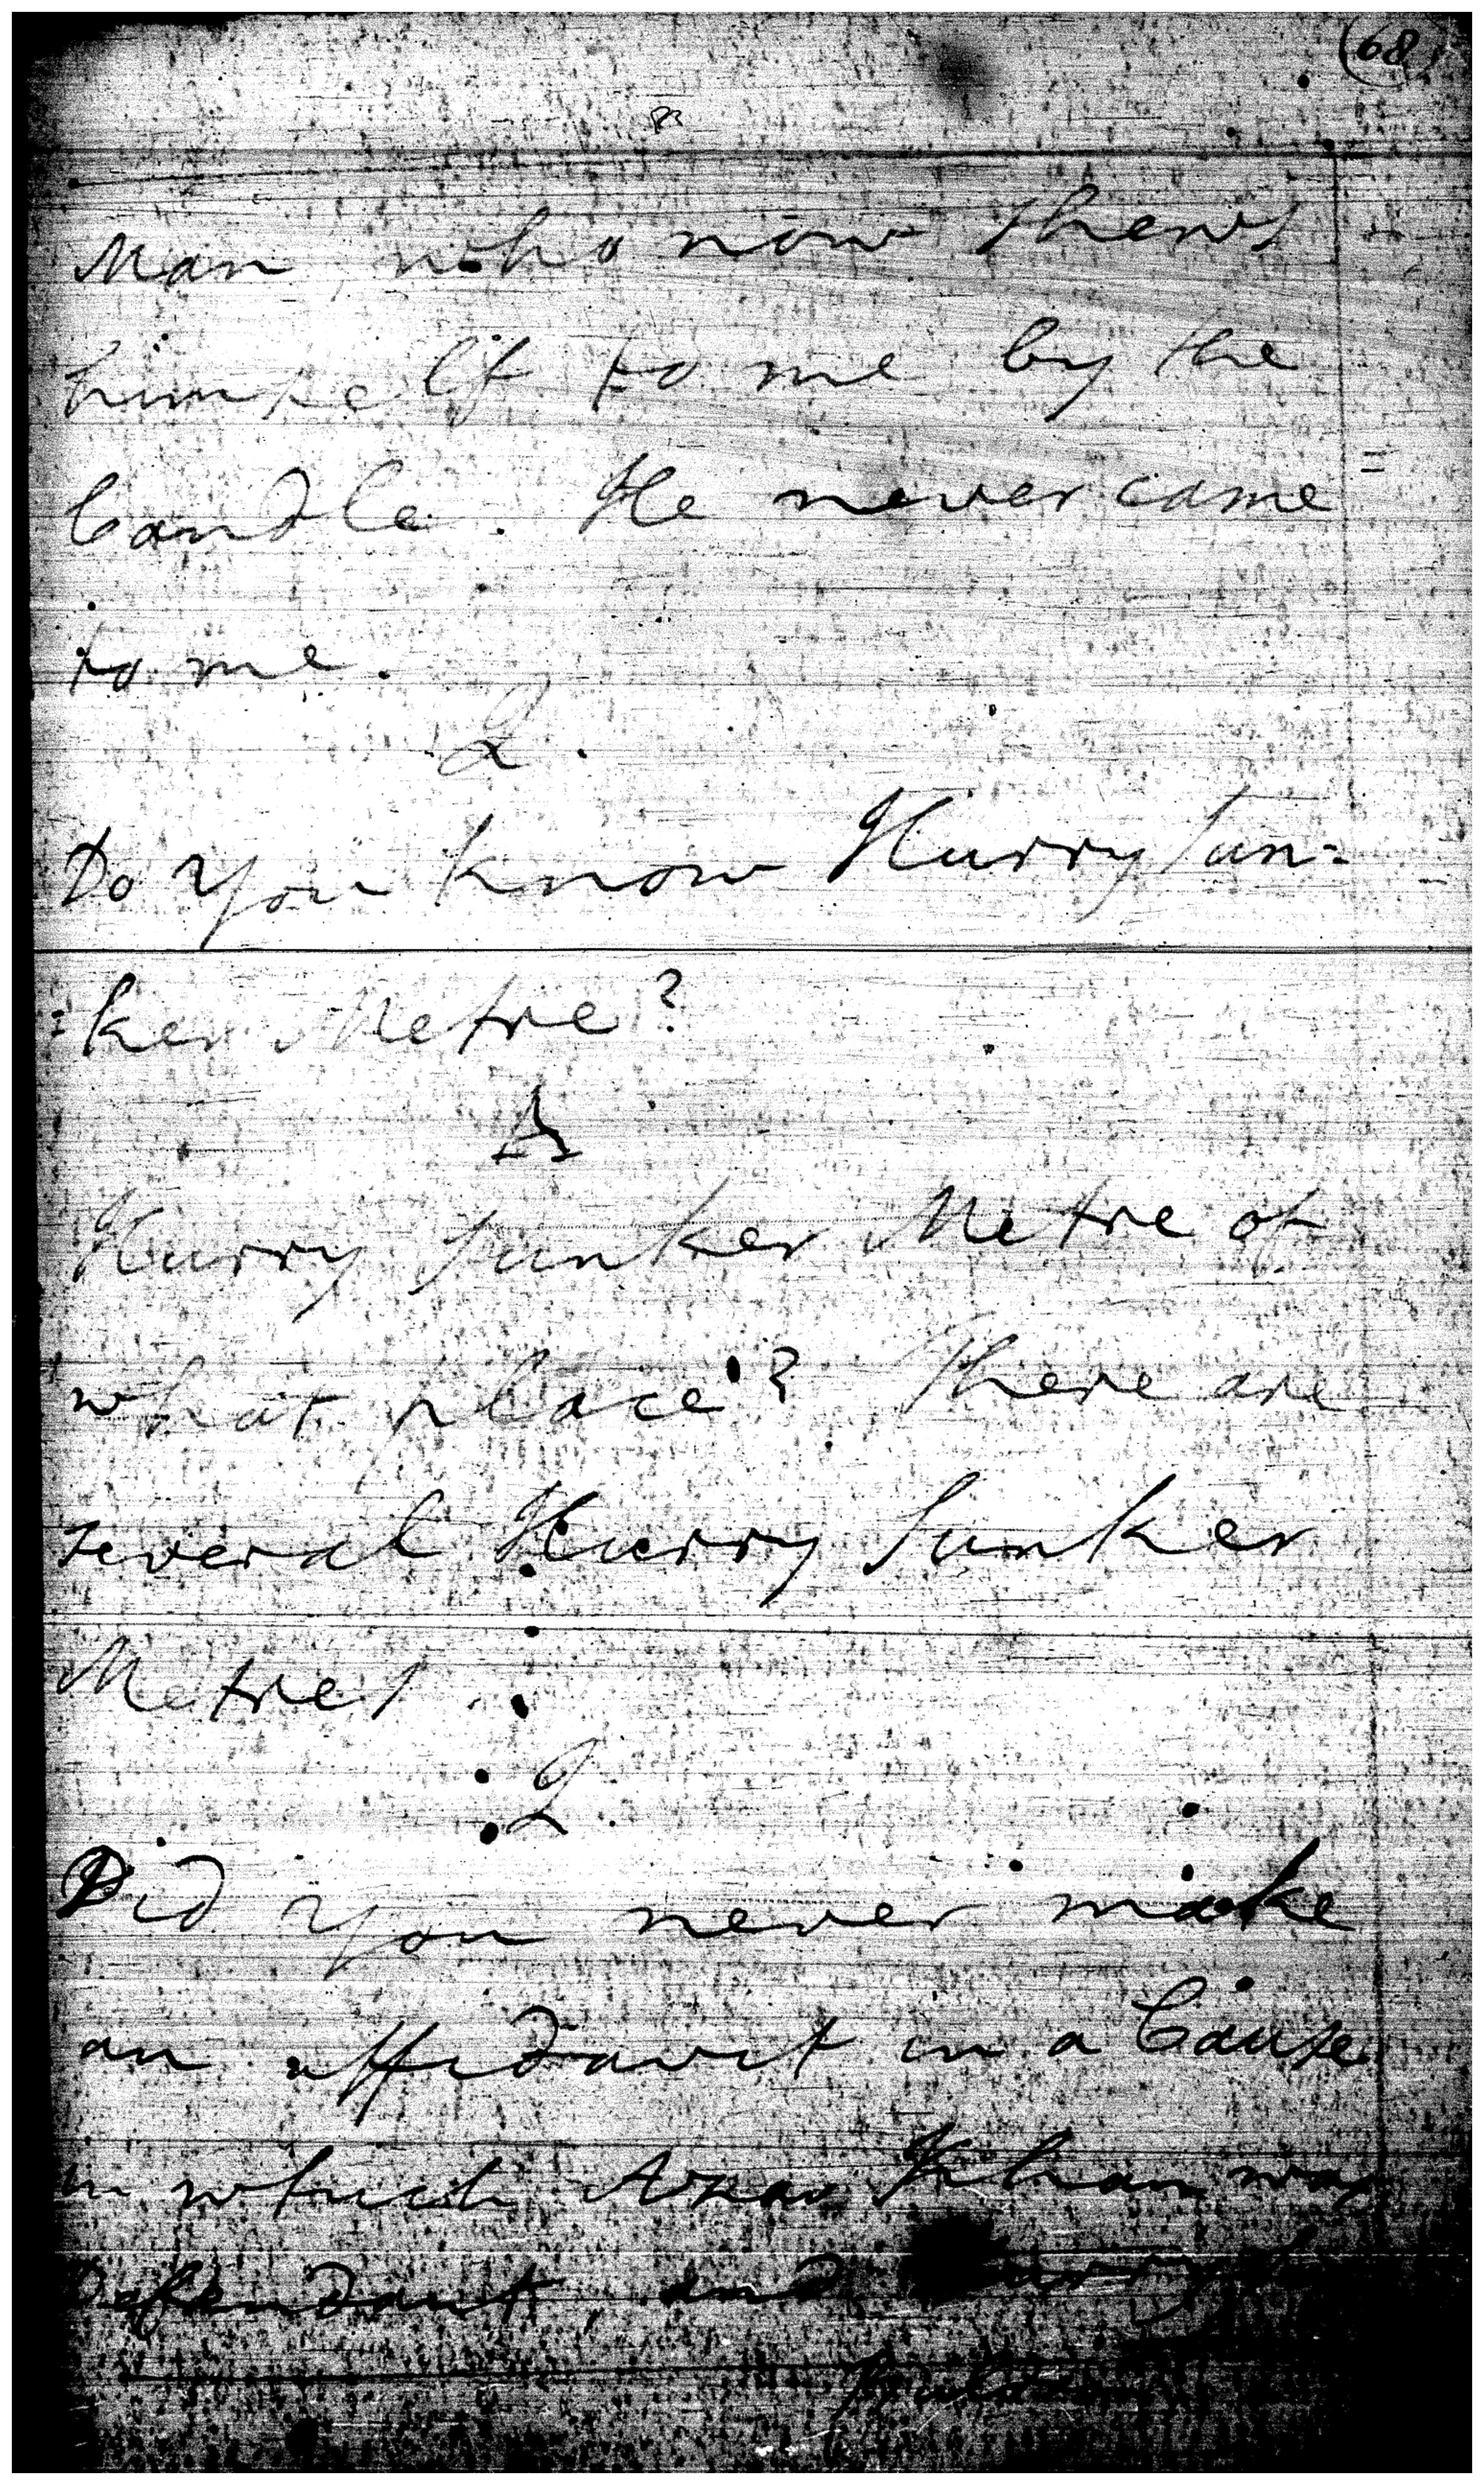 (68)
Man, who now shews
himself to me by the
Candle. He never came
to me.
Q.
Do you know Hurry Sun=
=ker Metre?
A
Hurry Sunker Metre of
what place? There are
several Hurry Sunker
Metres.
Q.
Did you never make
an affidavit in a Cause
in which Khan was
Defendant, and